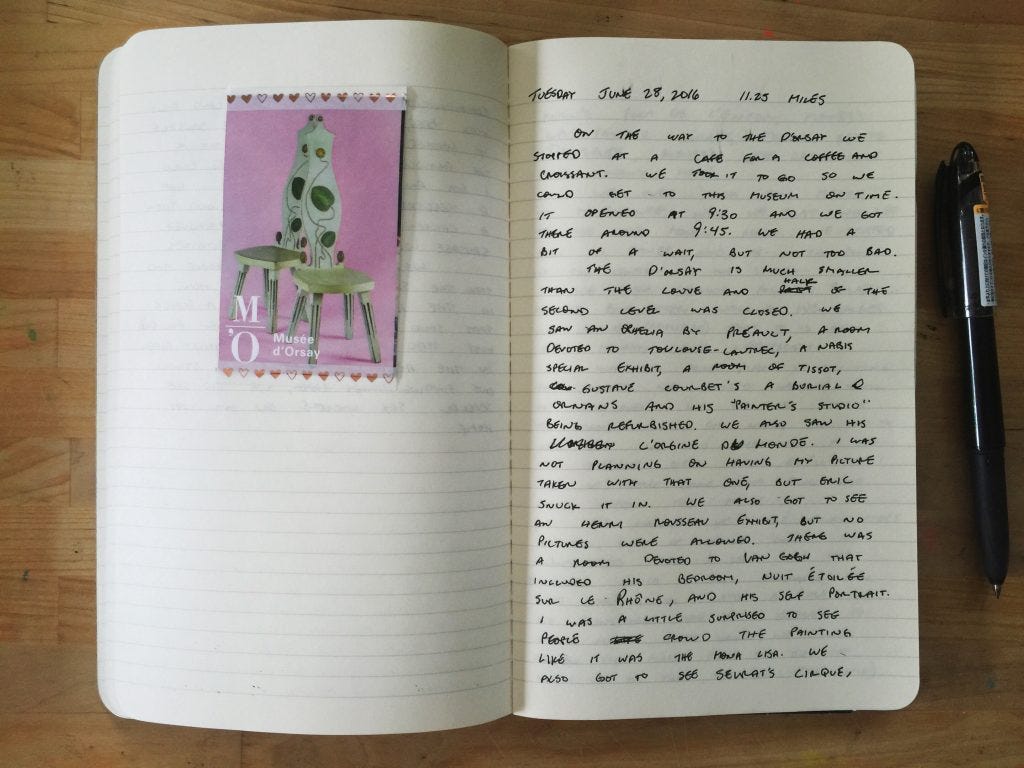 M
'O
Musée
d'Orsay
TUESDAY JUNE 28, 2016 11.25 MILES
ON THE WAY TO THE D'ORSAY WE
STOPPED AT A CAFE FOR A COFFEE AND
CROISSANT. WE TOOK IT TO GO SO WE
COULD GET TO THIS MUSEUM ON TIME.
IT OPENED AT 9:30 AND WE GOT
THERE AROUND 9:45. WE HAD A
BIT OF A WAIT, BUT NOT TOO BAD.
THE D'ORSAY IS MUCH SMALLER
THAN THE LOUVE AND HALF OF THE
SECOND LEVEL WAS CLOSED. WE
SAW AN OPHELIA BY PRÉAULT, A ROOM
DEVOTED TO TOULOUSE-LAUTREC, A NABIS
SPECIAL EXHIBIT, A ROOM OF TISSOT,
GUSTAVE COURBET'S A BURIAL @
ORNANS AND HIS "PAINTER'S STUDIO"
BEING REFURBISHED. WE ALSO SAW HIS
L'ORGINE DU MONDE. I WAS
NOT PLANNING ON HAVING MY PICTURE
TAKEN WITH THAT ONE, BUT ERIC
SNUCK IT IN. WE ALSO GOT TO SEE
AN HENRI ROUSSEAU EXHIBIT, BUT NO
PICTURES WERE ALLOWED. THERE WAS
A ROOM DEVOTED TO VAN GOGH THAT
INCLUDED HIS BEDROOM, NUIT ÉTOILÉE
SUR LE RHÔNE, AND HIS SELF PORTRAIT.
I WAS A LITTLE SURPRISED TO SEE
PEOPLE CROWD THE PAINTING
LIKE IT WAS THE MONA LISA. WE
ALSO GOT TO SEE SEURAT'S CIRQUE,